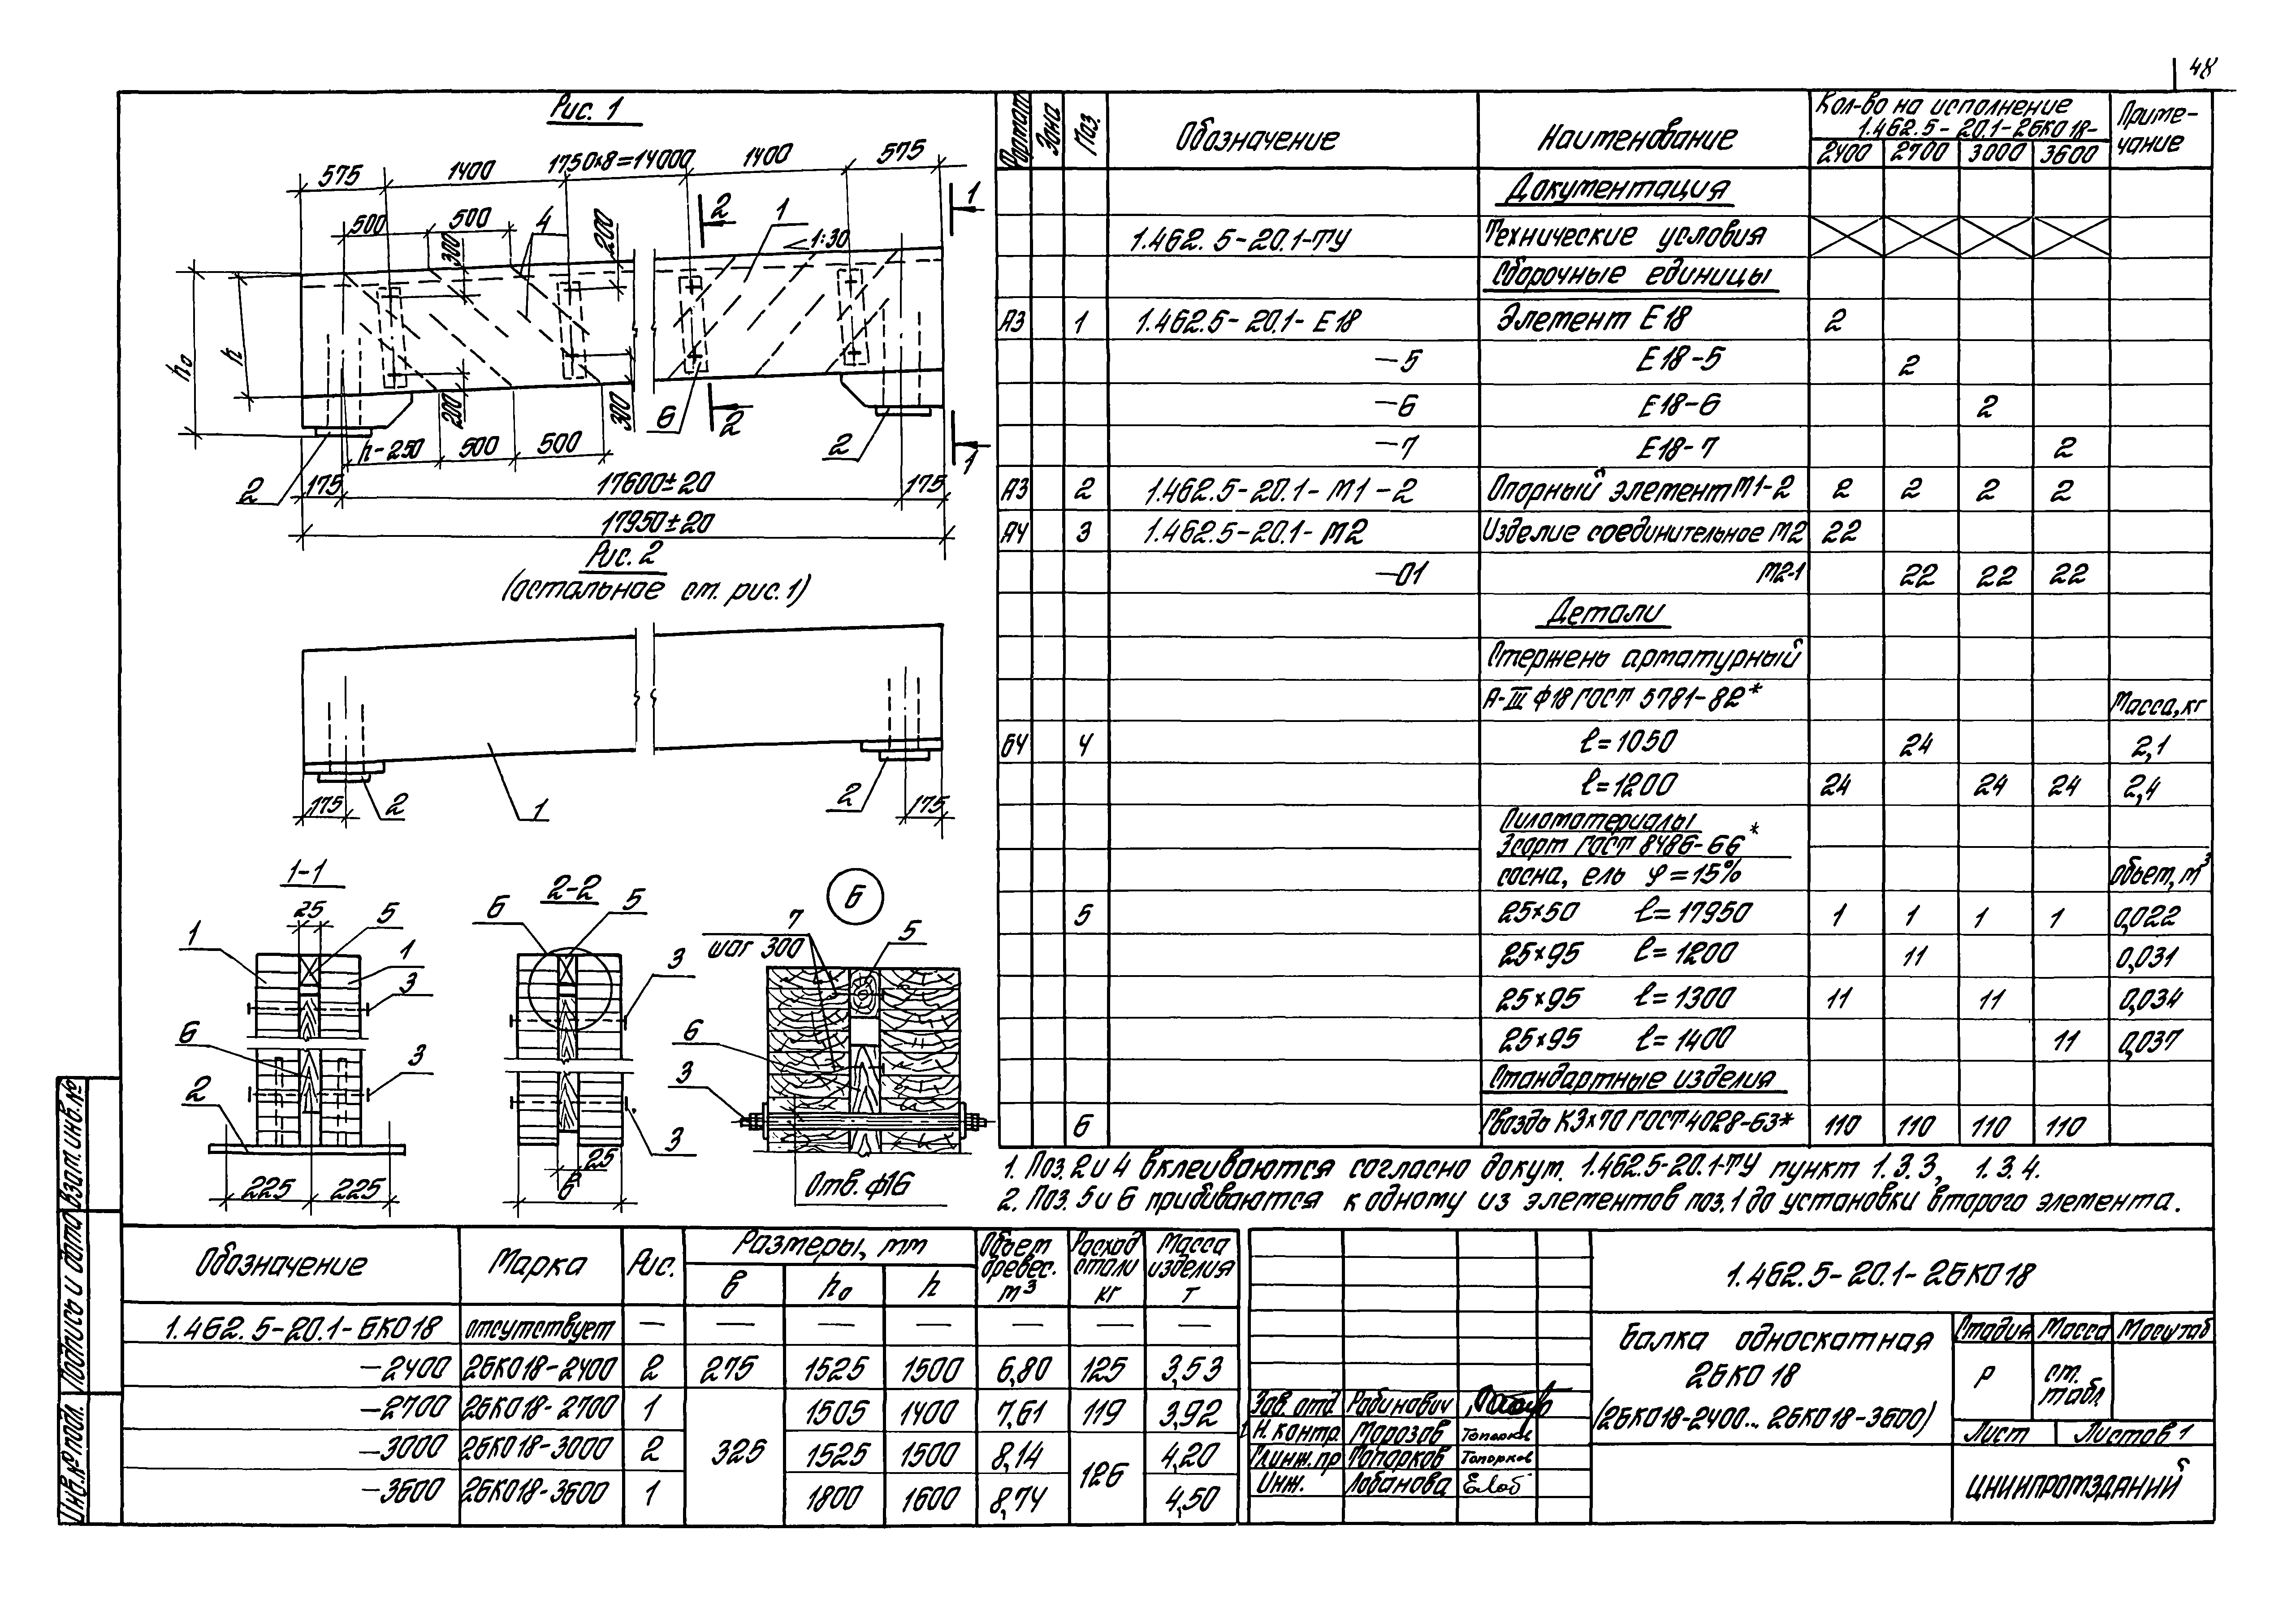 48
Рис. 1
575 1400 1750×8=14000 1400 575
1 2 1
500 500 4 200 1:30
300
h₀ h
200 300 6 2 2
h-250 500 500 1
2 175 17600±20 175
17950±20
Рис. 2
(остальное см. рис. 1)
175 2 1 2 175
1-1 2-2 6
25 5 6 5 7 5
1 1 шаг 300
3 3 6
6 3 3 3
2
225 225 25 в Отв. ф16
Формат Зона Поз. Обозначение Наименование Кол-во на исполнение 1.462.5-20.1-2БКО18- Приме-чание
2400 2700 3000 3600
Документация
1.462.5-20.1-ТУ Технические условия
Сборочные единицы
А3 1 1.462.5-20.1-Е18 Элемент Е18 2
-5 Е18-5 2
-6 Е18-6 2
-7 Е18-7 2
А3 2 1.462.5-20.1-М1-2 Опорный элемент М1-2 2 2 2 2
А4 3 1.462.5-20.1-М2 Изделие соединительное М2 22
-01 М2-1 22 22 22
Детали
Стержень арматурный
А-III ф18 ГОСТ 5781-82* Масса, кг
БЧ 4 ℓ=1050 24 2,1
ℓ=1200 24 24 24 2,4
Пиломатериалы
3сорт ГОСТ 8486-66*
сосна, ель φ=15% объем, м³
5 25×50 ℓ=17950 1 1 1 1 0,022
25×95 ℓ=1200 11 0,031
25×95 ℓ=1300 11 11 0,034
25×95 ℓ=1400 11 0,037
Стандартные изделия
6 Гвоздь К3×70 ГОСТ 4028-63* 110 110 110 110
1. Поз. 2 и 4 вклеиваются согласно докум. 1.462.5-20.1-ТУ пункт 1.3.3, 1.3.4.
2. Поз. 5 и 6 прибиваются к одному из элементов поз. 1 до установки второго элемента.
Обозначение Марка Рис. Размеры, мм Объем древес. м³ Расход стали кг Масса изделия т
в h₀ h
1.462.5-20.1-БКО18 отсутствует — — — — — — —
-2400 2БКО18-2400 2 275 1525 1500 6,80 125 3,53
-2700 2БКО18-2700 1 325 1505 1400 7,61 119 3,92
-3000 2БКО18-3000 2 1525 1500 8,14 126 4,20
-3600 2БКО18-3600 1 1800 1600 8,74 4,50
1.462.5-20.1-2БКО18
Балка односкатная
2БКО 18
(2БКО18-2400... 2БКО18-3600)
Стадия Масса Масштаб
Р см. табл.
Лист Листов 1
ЦНИИПРОМЗДАНИЙ
Зав. отд Рабинович
Н. контр Морозов Топорков
Гл.инж.пр Топорков Топорков
Инж. Лобанова Елоб
Инв.№ подл. Подпись и дата Взам. инв.№